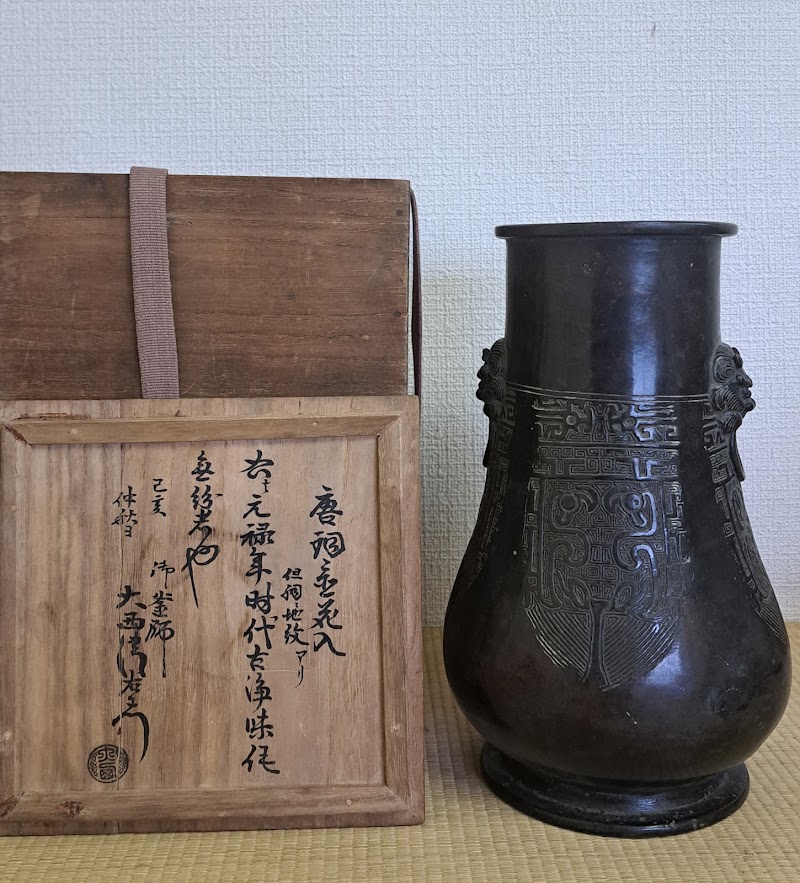 唐銅花入
但胴地紋アリ
右ハ元禄年時代古浄味作
無紛者也
己亥
仲秋日
御釜師
大西清右衛門